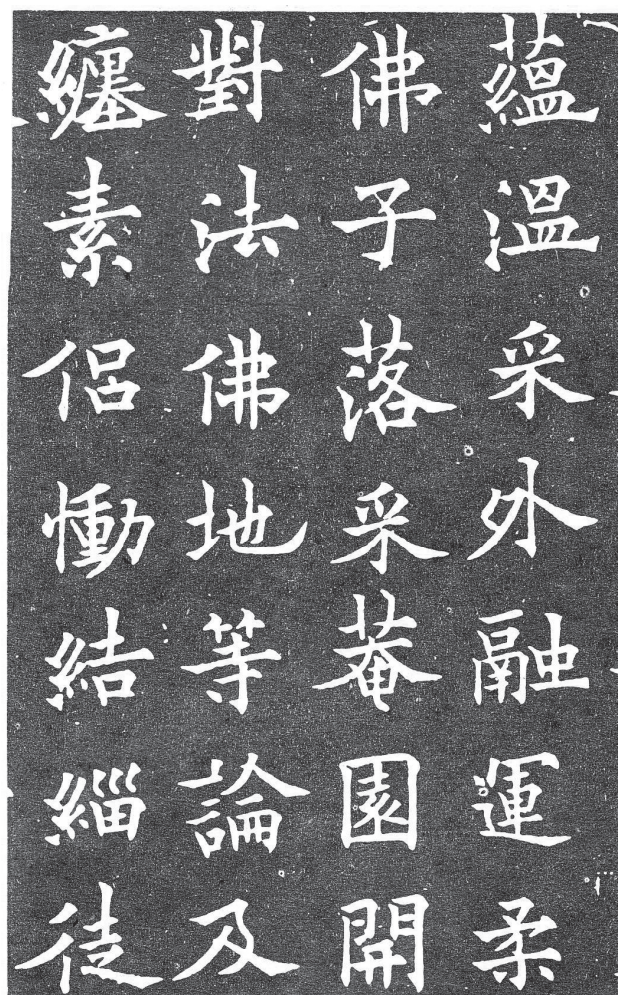 蘊溫采外融運柔
佛子落采菴園開
對法佛地等論及
纏素侶慟結緇徒